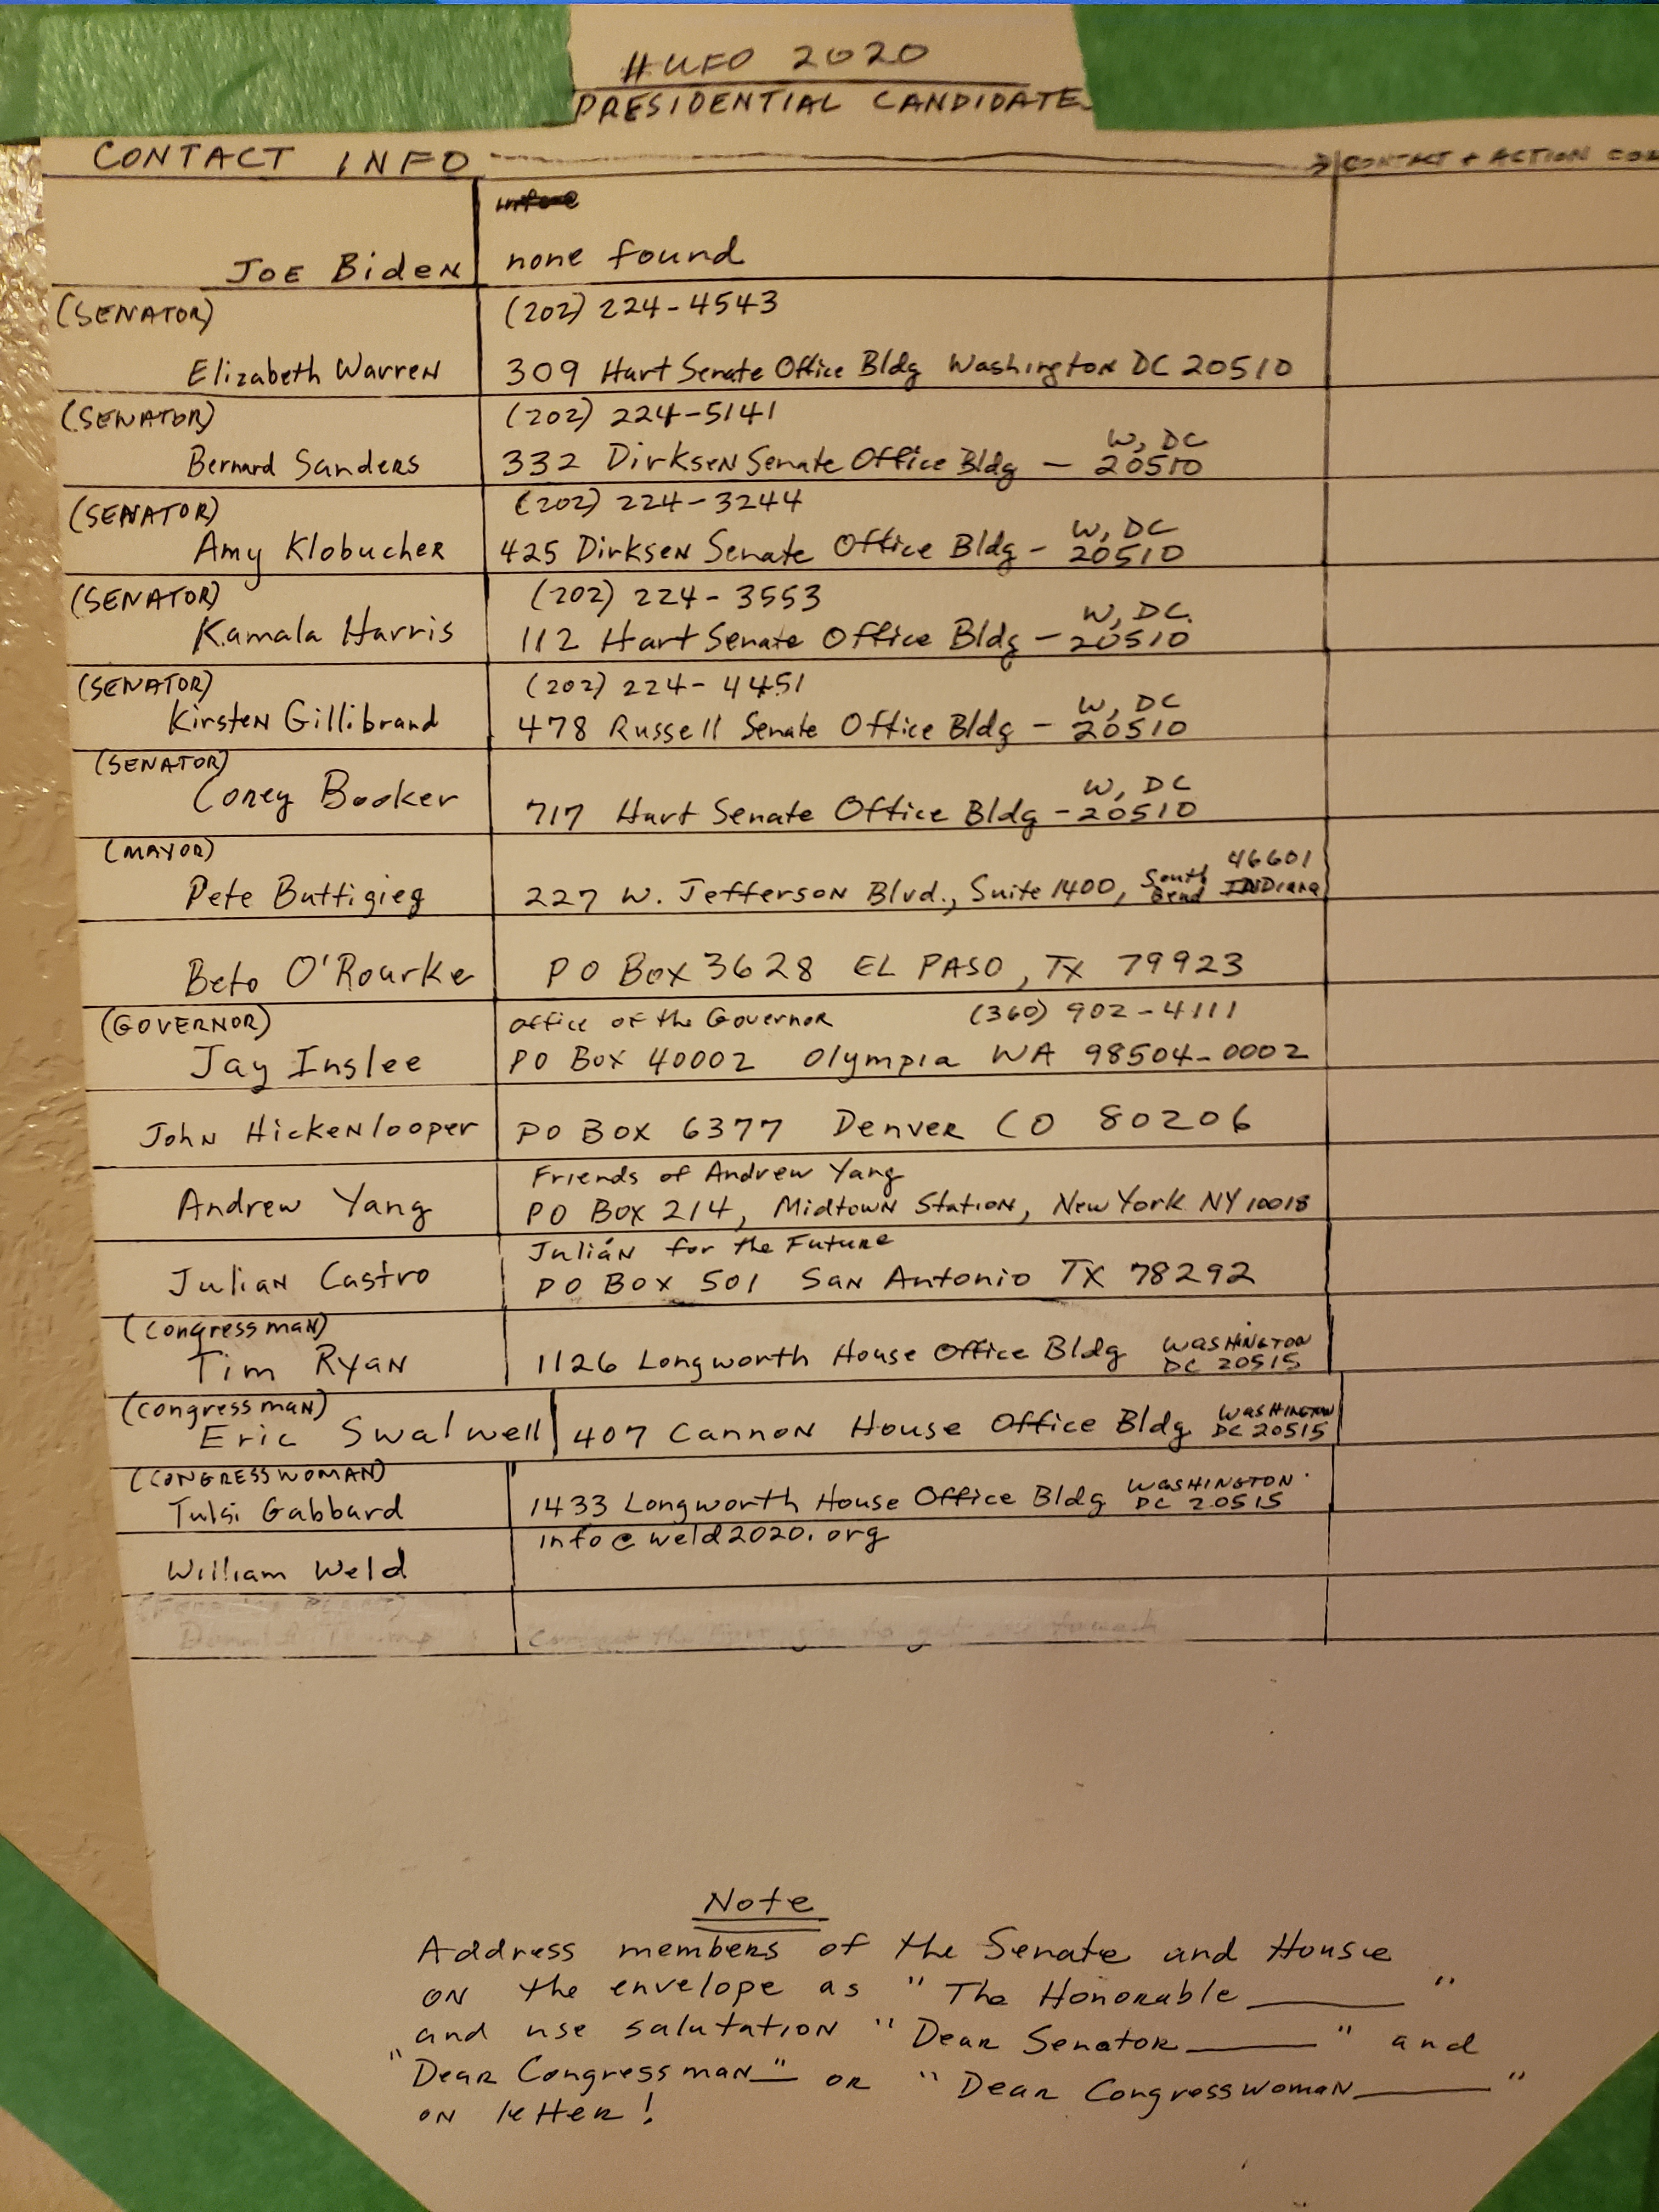 #UFO 2020
PRESIDENTIAL CANDIDATES
CONTACT INFO
CONTACT + ACTION
JOE BideN
none found
(SENATOR)
(202) 224-4543
Elizabeth WarreN
309 Hart Senate Office Bldg WashingtoN DC 20510
(SENATOR)
(202) 224-5141
Bernard Sanders
332 DirkseN Senate Office Bldg — W, DC 20510
(SENATOR)
(202) 224-3244
Amy Klobucher
425 DirkseN Senate Office Bldg - W, DC 20510
(SENATOR)
(202) 224-3553
Kamala Harris
112 Hart Senate Office Bldg - W, DC. 20510
(SENATOR)
(202) 224-4451
KirsteN Gillibrand
478 Russell Senate Office Bldg - W, DC 20510
(SENATOR)
Corey Booker
717 Hart Senate Office Bldg - W, DC 20510
(MAYOR)
Pete Buttigieg
227 W. JeffersoN Blvd., Suite 1400, South Bend INDiana 46601
Beto O'Rourke
PO Box 3628 EL PASO, TX 79923
(GOVERNOR)
Office of the GoverNoR (360) 902-4111
Jay Inslee
PO Box 40002 Olympia WA 98504-0002
JohN HickeNlooper
PO BOX 6377 Denver CO 80206
Friends of Andrew Yang
Andrew Yang
PO BOX 214, MidtowN StatioN, New York NY 10018
JuliáN for the Future
JuliaN Castro
PO BOX 501 SaN Antonio TX 78292
(CongressmaN)
Tim RyaN
1126 Longworth House Office Bldg WASHINGTON DC 20515
(CongressmaN)
Eric Swalwell
407 CannoN House Office Bldg WASHINGTON DC 20515
(CONGRESSWOMAN)
Tulsi Gabbard
1433 Longworth House Office Bldg WASHINGTON DC 20515
info@weld2020.org
William Weld
Note
Address members of the Senate and House
oN the envelope as "The Honorable ______"
and use salutatioN "Dear Senator ______" and
"Dear CongressmaN __" or "Dear CongresswomaN ______"
oN letter!